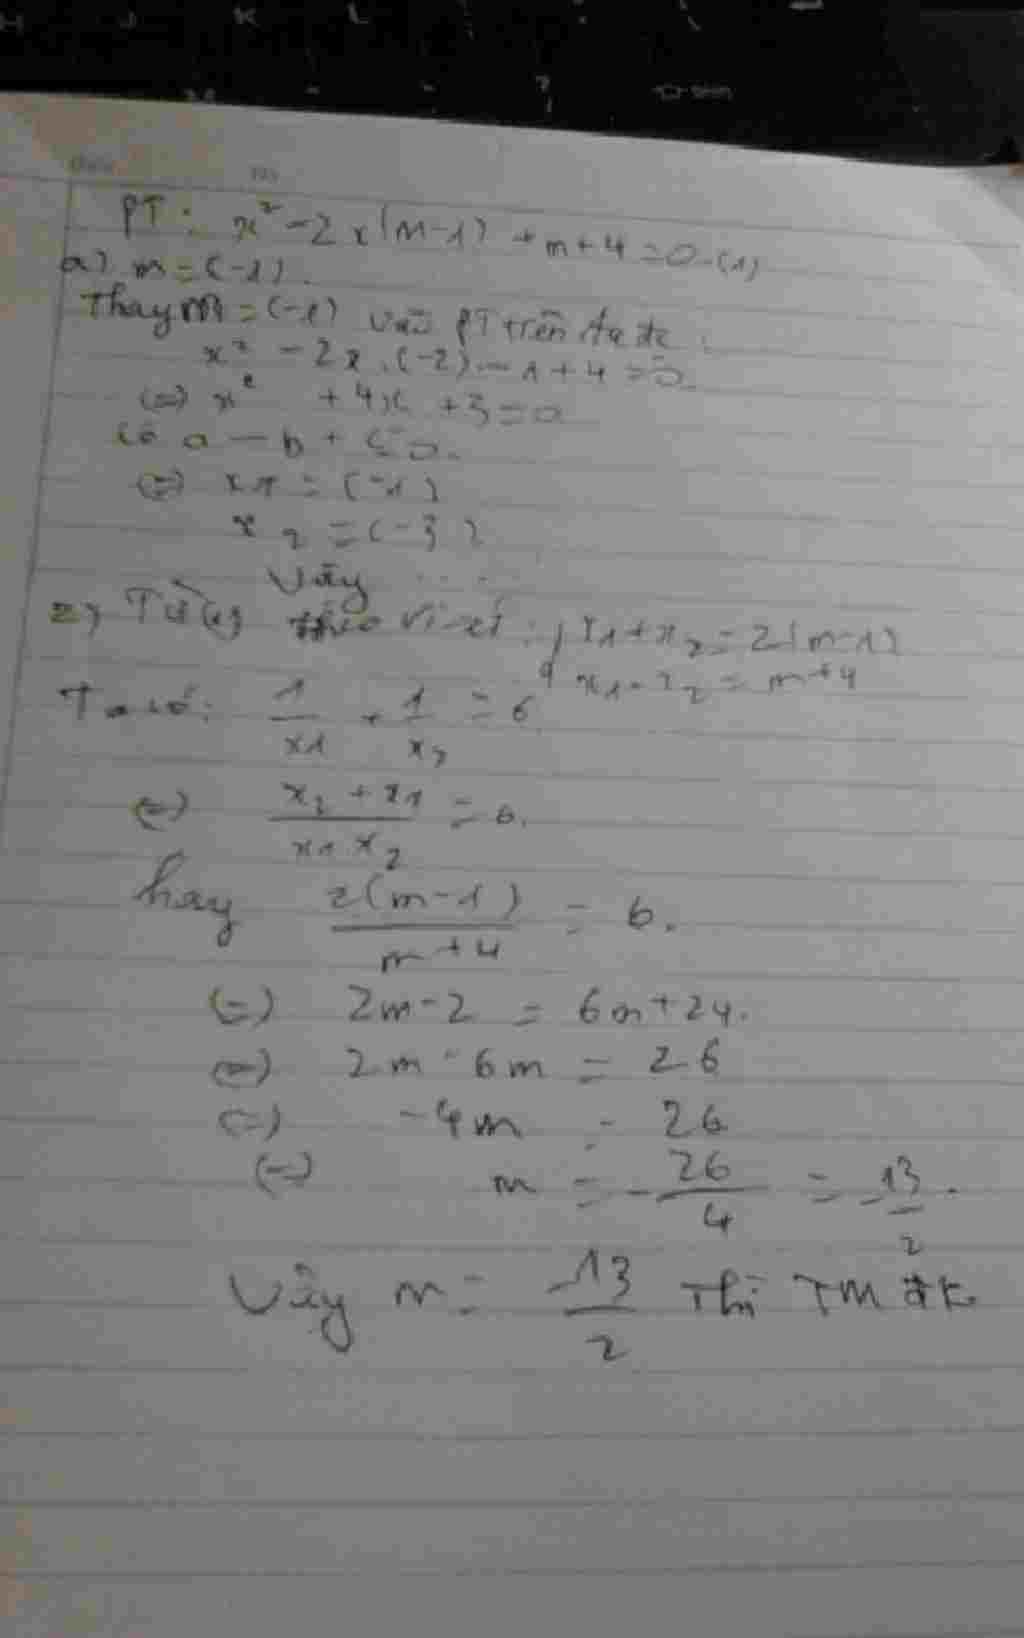 H J K L : \
M ?
PT: x² - 2x(m-1) + m+4 = 0 (1)
a) m = (-1).
Thay m = (-1) vào PT trên ta đc:
x² - 2x.(-2) - 1 + 4 = 0
(=) x² + 4x + 3 = 0
Có a - b + c = 0.
(=) x1 = (-1)
x2 = (-3)
Vậy ....
2) Từ (1) theo Vi-et: { x1+x2 = 2(m-1)
x1.x2 = m+4
Ta có: 1/x1 + 1/x2 = 6
(=) x2 + x1 / x1 x2 = 6.
hay 2(m-1) / m+4 = 6.
(=) 2m-2 = 6m+24.
(=) 2m-6m = 26
(=) -4m = 26
(=) m = -26/4 = -13/2.
Vậy m = -13/2 thì TM đk